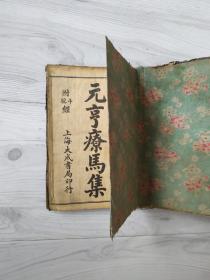 元亨療馬集
附牛駝經
上海大成書局印行